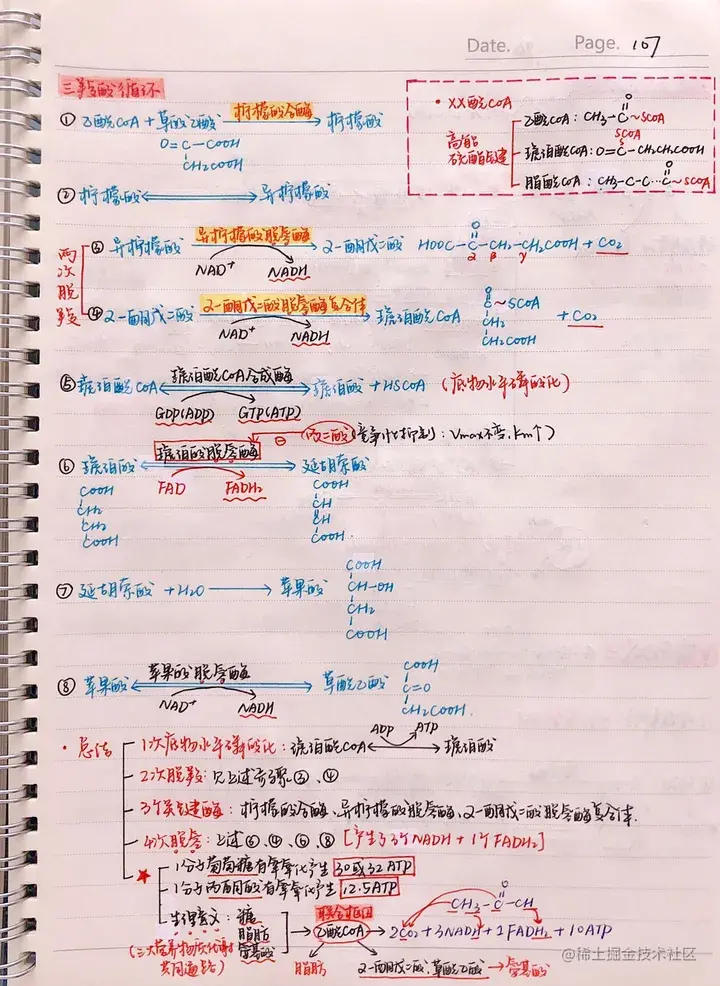 Date. Page. 107
三羧酸循环
① 乙酰CoA + 草酰乙酸 柠檬酸合酶 柠檬酸
O=C-COOH
CH₂COOH
• XX酰CoA
高能硫酯键
乙酰CoA: CH₃-C~SCoA
O
琥珀酰CoA: O=C-CH₂CH₂COOH
SCoA
脂酰CoA: CH₃-C-C…C~SCoA
O
② 柠檬酸 异柠檬酸
两次脱羧
③ 异柠檬酸 异柠檬酸脱氢酶 2-酮戊二酸 HOOC-C-CH₂-CH₂COOH + CO₂
O
α β γ
NAD⁺ NADH
④ 2-酮戊二酸 2-酮戊二酸脱氢酶复合体 琥珀酰CoA + CO₂
NAD⁺ NADH
C~SCoA
CH₂
CH₂COOH
⑤ 琥珀酰CoA 琥珀酰CoA合成酶 琥珀酸 + HSCoA (底物水平磷酸化)
GDP(ADP) GTP(ATP)
琥珀酸脱氢酶 ⊖ 丙二酸 (竞争性抑制: Vmax不变, Km↑)
⑥ 琥珀酸 延胡索酸
FAD FADH₂
COOH
CH₂
CH₂
COOH
COOH
CH
CH
COOH
⑦ 延胡索酸 + H₂O 苹果酸
COOH
CH-OH
CH₂
COOH
⑧ 苹果酸 苹果酸脱氢酶 草酰乙酸
NAD⁺ NADH
COOH
C=O
CH₂COOH.
• 总结
1次底物水平磷酸化: 琥珀酰CoA 琥珀酸
ADP ATP
2次脱羧: 见上述步骤③、④
3个关键酶: 柠檬酸合酶、异柠檬酸脱氢酶、2-酮戊二酸脱氢酶复合体.
4次脱氢: 上述③、④、⑥、⑧ [产生3个NADH + 1个FADH₂]
★
1分子葡萄糖有氧氧化产生 30或32ATP
1分子丙酮酸有氧氧化产生 12.5ATP
生理意义: 糖
脂肪
氨基酸
(三大营养物质代谢共同通路)
联合枢纽
乙酰CoA 2CO₂ + 3NADH + 1FADH₂ + 10ATP
CH₃-C-CH
O
脂肪 2-酮戊二酸、草酰乙酸 → 氨基酸
@稀土掘金技术社区